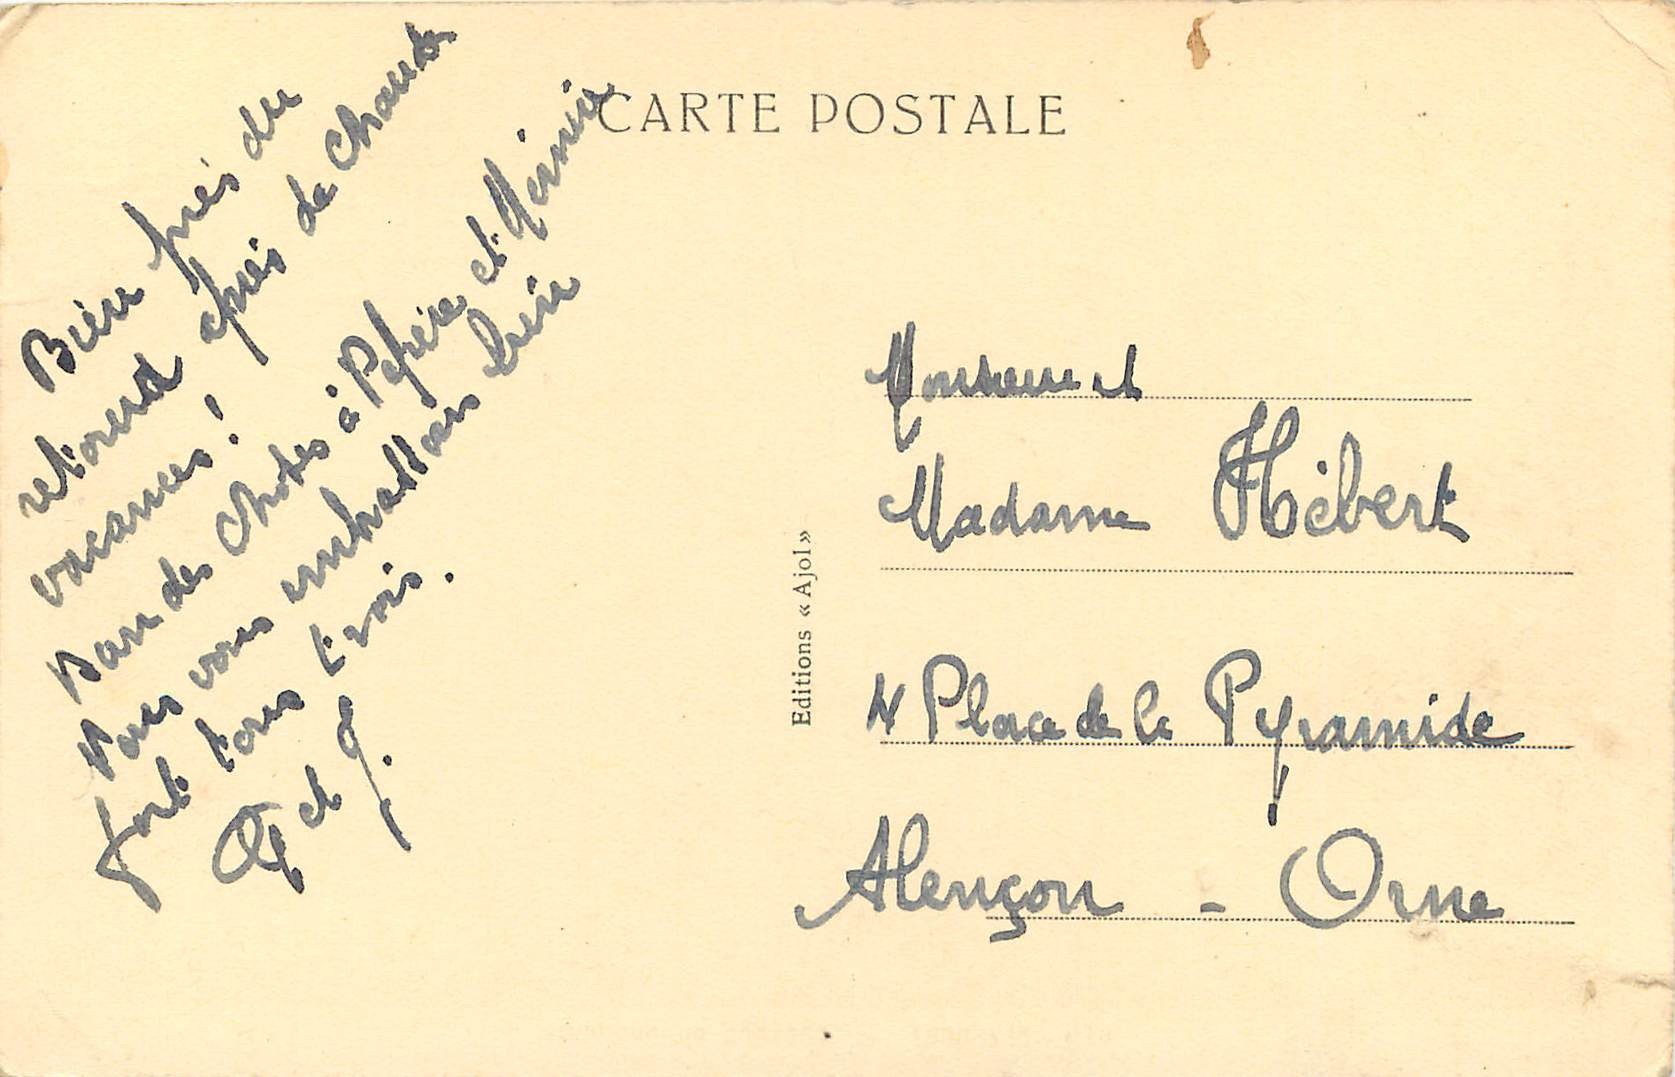 CARTE POSTALE
Bien près du
retour après de chaudes
vacances !
Bon des choses à Pépère et Mémère
Nous vous embrassons bien
fort tous trois.
et
Editions « Ajol »
Monsieur et
Madame Hébert
4 Place de la Pyramide
Alençon - Orne